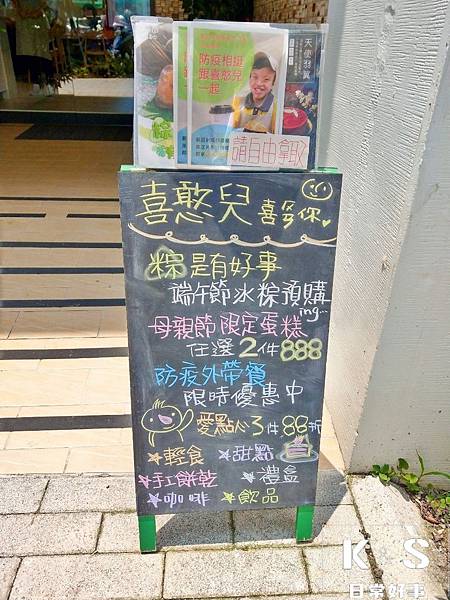 防疫相挺
跟喜憨兒
一起
天使羽翼
請自由拿取
喜憨兒 喜多你
粽是有好事
端午節冰粽預購
ing...
母親節限定蛋糕
任選2件888
防疫外帶餐
限時優惠中
愛點心3件88折
★輕食 ★甜點
★手工餅乾 ★禮盒
★咖啡 ★飲品
K&S
日常好事